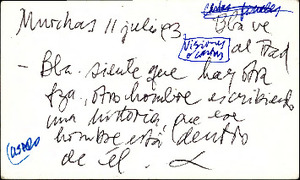 Murchas 11 julio 93. Bba ve
al rad
Visiones
o cartas
- Bba. siente que hay otra
fza, otro hombre escribiendo
una historia, que ese
hombre está dentro
de él.